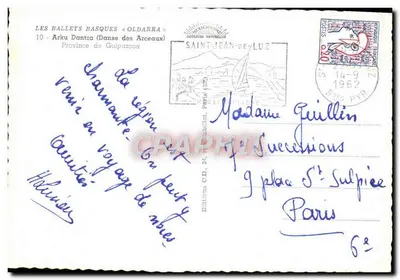 LES BALLETS BASQUES « OLDARRA »
10 - Arku Dantza (Danse des Arceaux)
Province de Guipuzcoa
SAINT-JEAN-DE-LUZ
14-9
1962
0,20
La région est
charmante. On peut y
venir en voyage de noces
Madame Guillin
17 Successions
9 place St Sulpice
Paris
6e
CPARPHIL